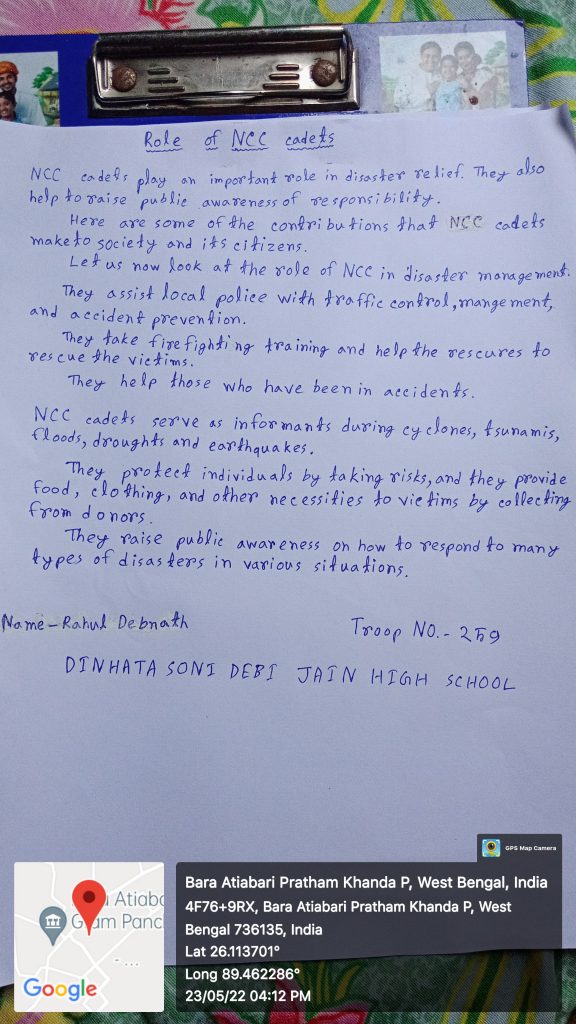 Role of NCC cadets
NCC cadets play an important role in disaster relief. They also
help to raise public awareness of responsibility.
Here are some of the contributions that NCC cadets
make to society and its citizens.
Let us now look at the role of NCC in disaster management.
They assist local police with traffic control, mangement,
and accident prevention.
They take firefighting training and help the rescures to
rescue the victims.
They help those who have been in accidents.
NCC cadets serve as informants during cyclones, tsunamis,
floods, droughts and earthquakes.
They protect individuals by taking risks, and they provide
food, clothing, and other necessities to victims by collecting
from donors.
They raise public awareness on how to respond to many
types of disasters in various situations.
Name - Rahul Debnath
Troop NO. - 259
DINHATA SONI DEBI JAIN HIGH SCHOOL
GPS Map Camera
Bara Atiabari Pratham Khanda P, West Bengal, India
4F76+9RX, Bara Atiabari Pratham Khanda P, West
Bengal 736135, India
Lat 26.113701°
Long 89.462286°
23/05/22 04:12 PM
Google